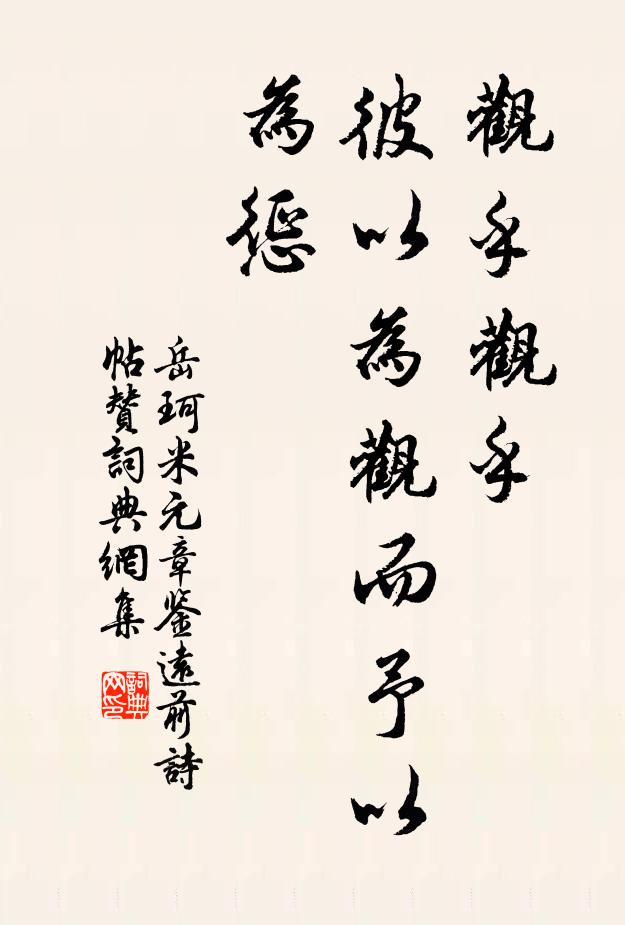 觀乎觀乎
彼以為觀而予以
為懲
岳珂米元章鉴遠前詩
帖贊詞典網集
詞典
网印